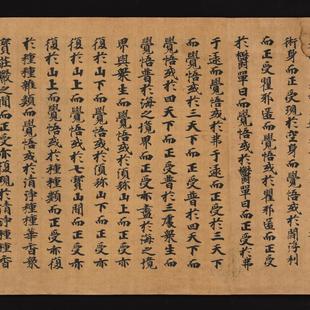 術身而正受現於空身而覺悟或於閻浮利
而正受瞿耶匿而覺悟或於瞿耶匿而正受
於欝單曰而覺悟或於欝單曰而正受於弗
于逮而覺悟或於弗于逮而正受於三天下
而覺悟或於三天下而正受普於四天下而
覺悟或於四天下而正受普於三處衆生而
覺悟普於海之境界而正受亦盡於海之境
界與衆生而覺悟或於須弥山上而正受亦
復於山下而覺悟或於須弥山下而正受亦
復於山上而覺悟或於七寶山間而正受亦
復於山上而覺悟或於種種類而正受亦復
於種種雜類而覺悟或於清淨種種華香衆
寶莊嚴之間而正受亦復現於清淨種種香